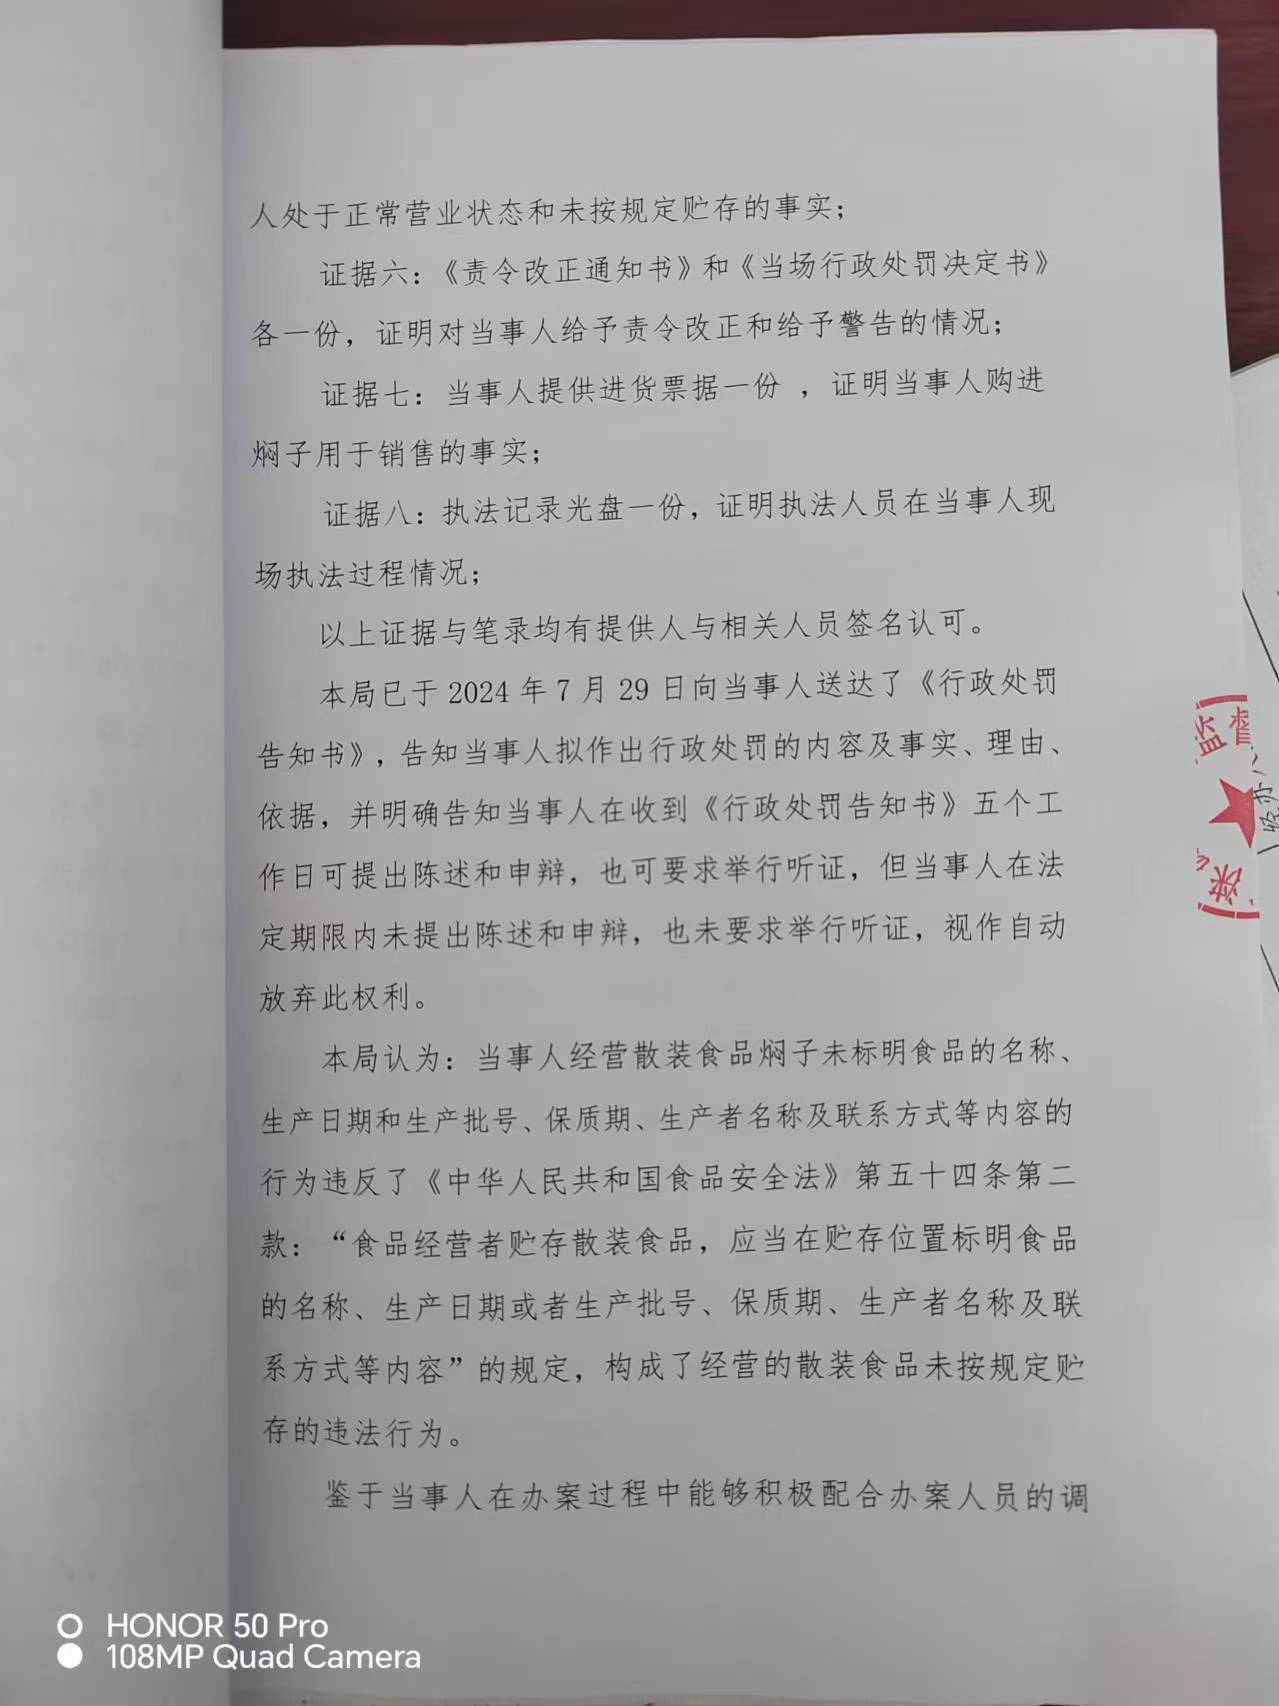 人处于正常营业状态和未按规定贮存的事实；
证据六：《责令改正通知书》和《当场行政处罚决定书》
各一份，证明对当事人给予责令改正和给予警告的情况；
证据七：当事人提供进货票据一份 ，证明当事人购进
焖子用于销售的事实；
证据八：执法记录光盘一份，证明执法人员在当事人现
场执法过程情况；
以上证据与笔录均有提供人与相关人员签名认可。
本局已于 2024 年 7 月 29 日向当事人送达了《行政处罚
告知书》，告知当事人拟作出行政处罚的内容及事实、理由、
依据，并明确告知当事人在收到《行政处罚告知书》五个工
作日可提出陈述和申辩，也可要求举行听证，但当事人在法
定期限内未提出陈述和申辩，也未要求举行听证，视作自动
放弃此权利。
本局认为：当事人经营散装食品焖子未标明食品的名称、
生产日期和生产批号、保质期、生产者名称及联系方式等内容的
行为违反了《中华人民共和国食品安全法》第五十四条第二
款：“食品经营者贮存散装食品，应当在贮存位置标明食品
的名称、生产日期或者生产批号、保质期、生产者名称及联
系方式等内容”的规定，构成了经营的散装食品未按规定贮
存的违法行为。
鉴于当事人在办案过程中能够积极配合办案人员的调
监督
HONOR 50 Pro
108MP Quad Camera